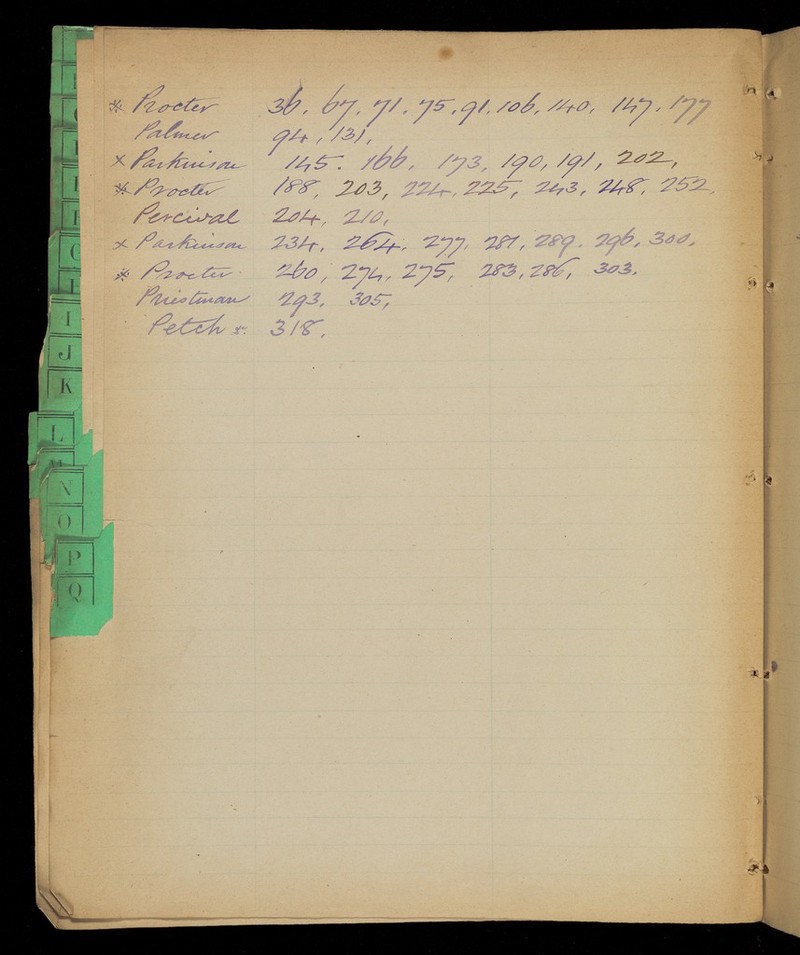 ※ Procter 36, 67, 71, 75, 91, 106, 140, 147, 177
Palmer 94, 131,
× Parkinson 145. 166, 173, 190, 191, 202,
※ Procter 188, 203, 224, 225, 243, 248, 252,
Percival 204, 210,
× Parkinson 234, 264, 277, 281, 289. 296, 300,
※ Procter 260, 274, 275, 283, 286, 303.
Priestman 293, 305,
Petch 318,
I
J
K
L
N
O
P
Q